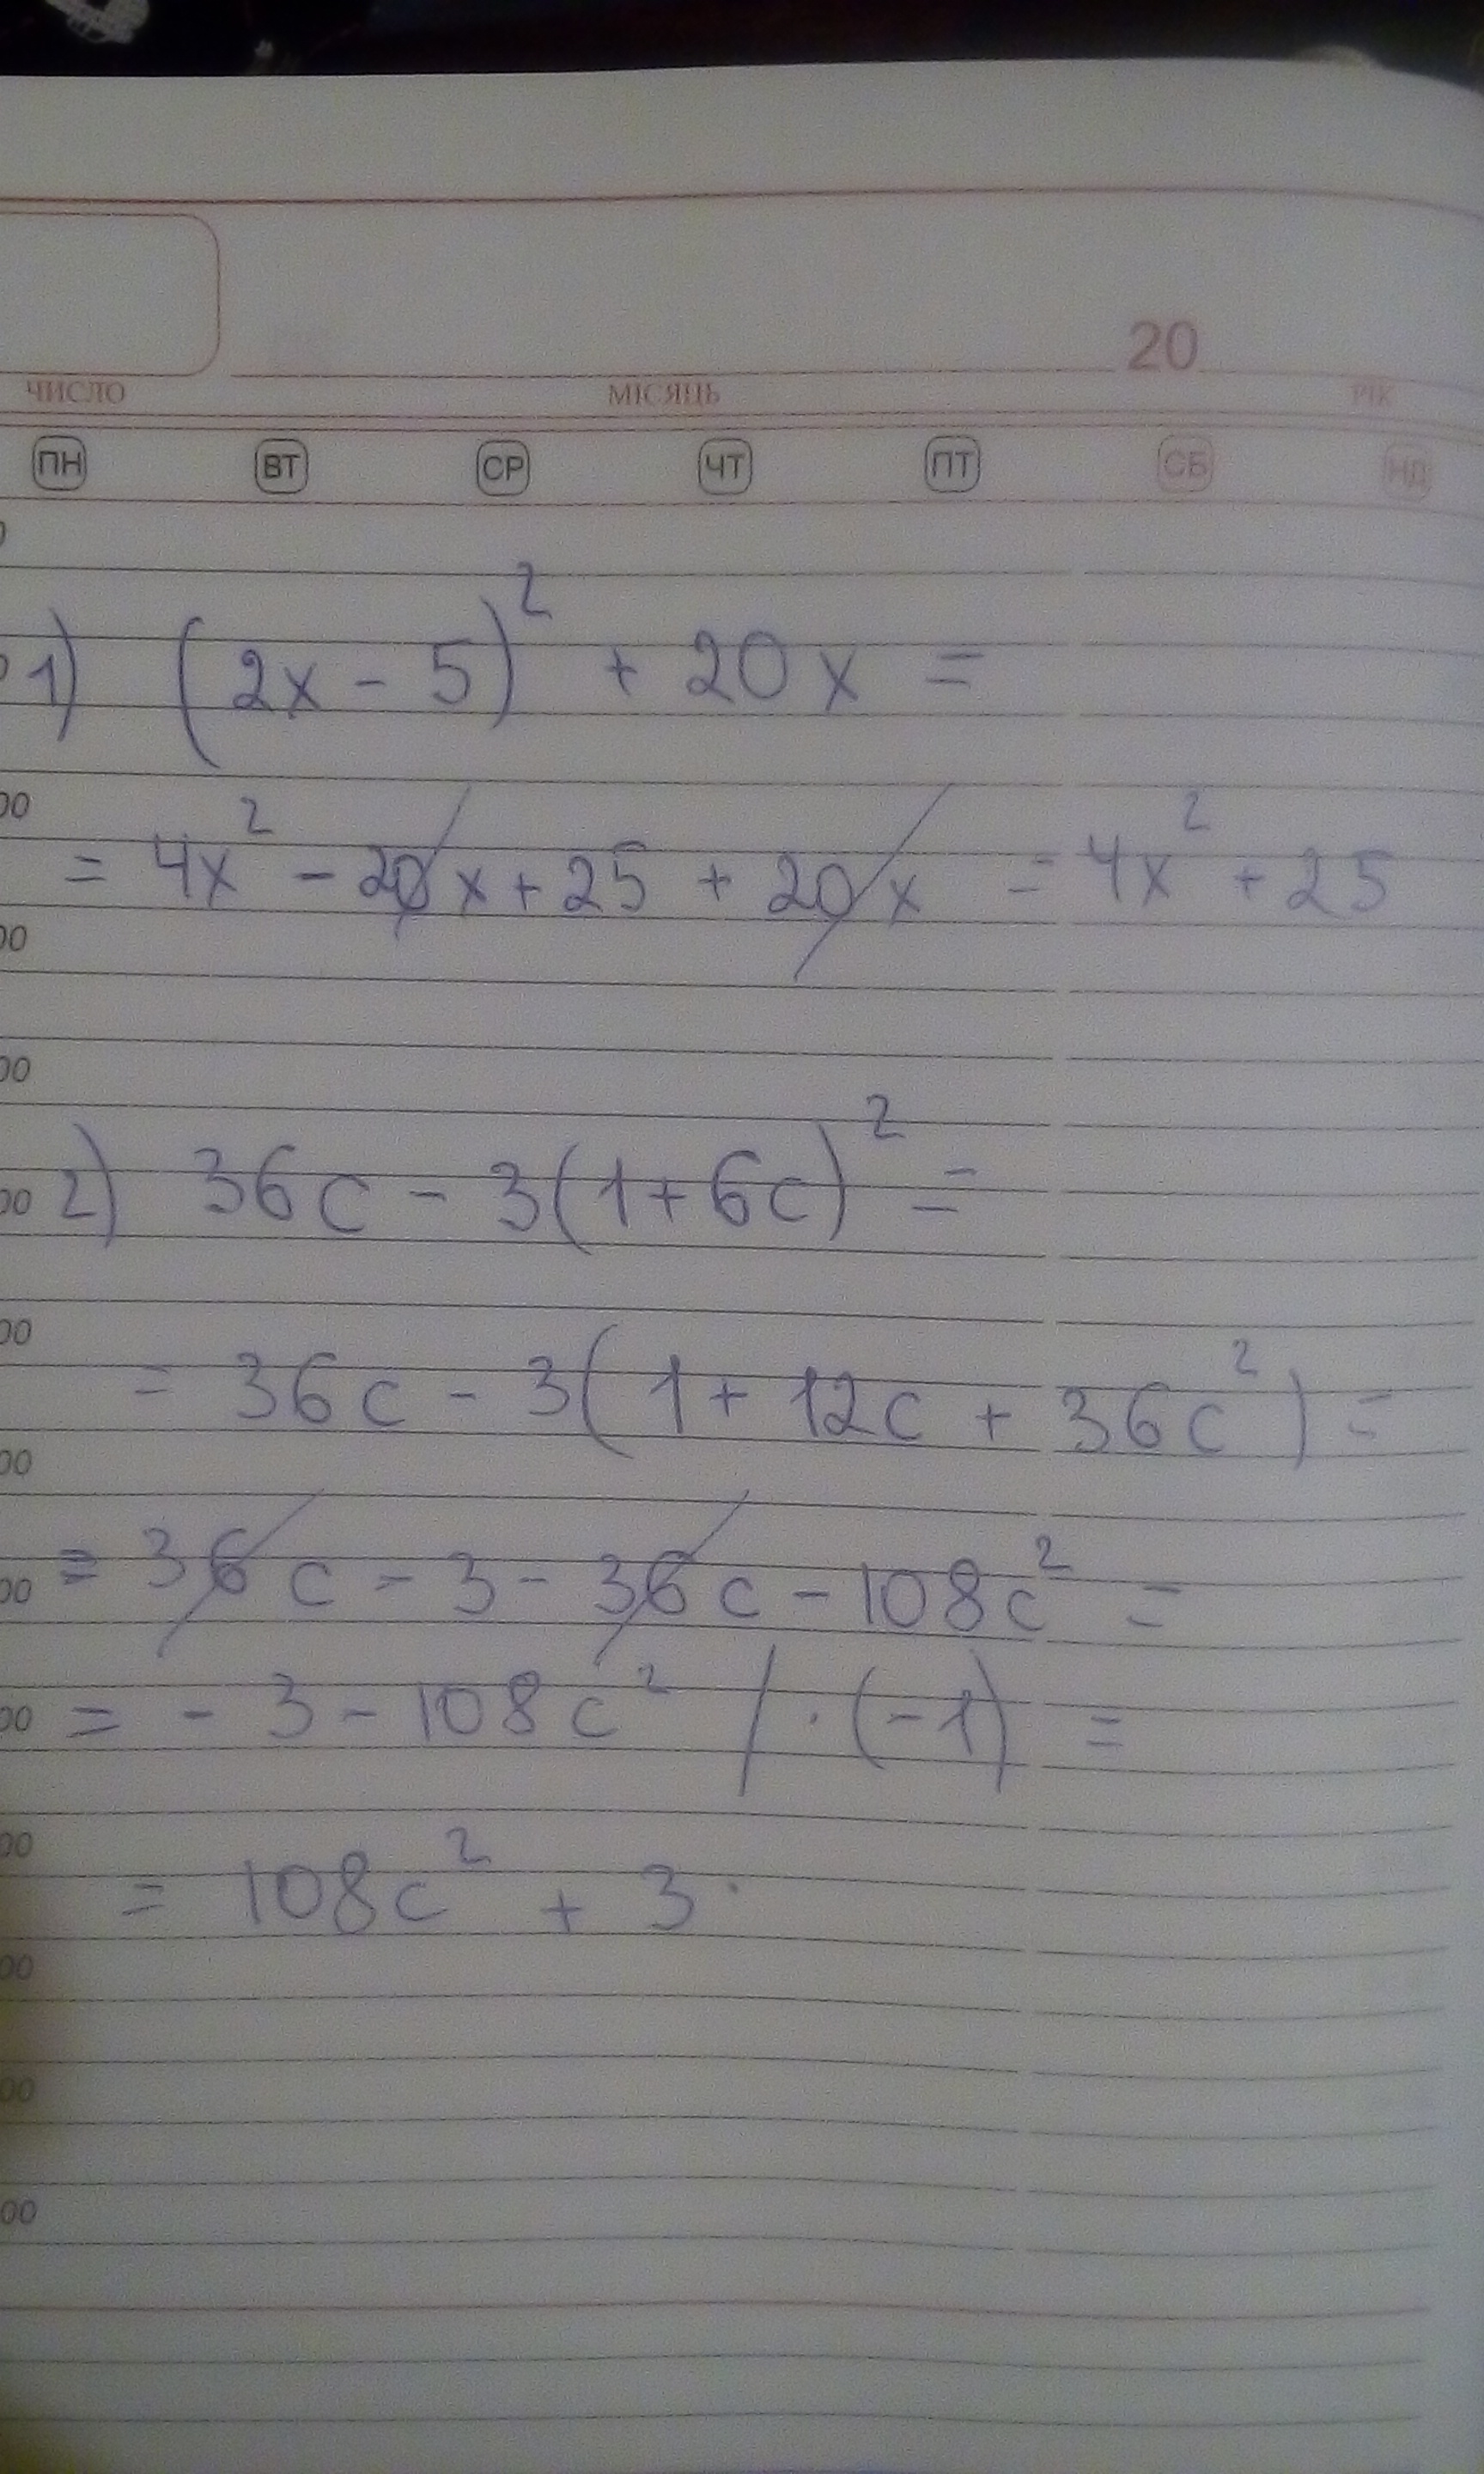 20
ЧИСЛО МІСЯЦЬ РІК
ПН ВТ СР ЧТ ПТ СБ НД
1) (2x - 5)² + 20x =
00
= 4x² - 20x + 25 + 20x = 4x² + 25
00
00
00 2) 36c - 3(1+6c)² =
00
= 36c - 3(1 + 12c + 36c²) =
00
00 = 36c - 3 - 36c - 108c² =
00 = - 3 - 108c² / · (-1) =
00
= 108c² + 3.
00
00
00